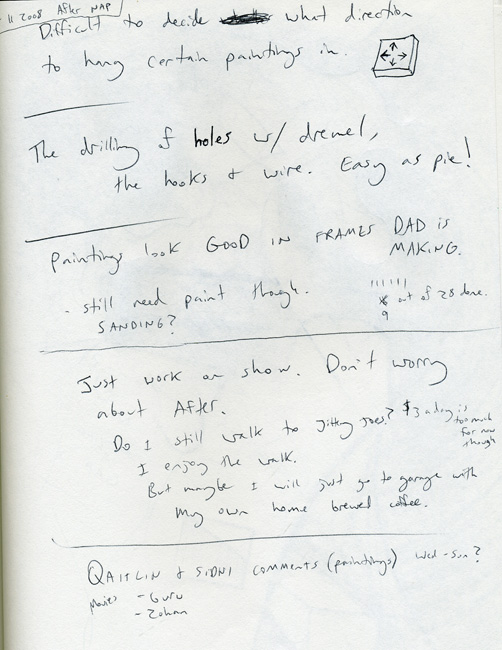 11 2008 After NAP
Difficult to decide what direction
to hang certain paintings in.
The drilling of holes w/ dremel,
the hooks & wire. Easy as pie!
Paintings look GOOD IN FRAMES DAD is
MAKING.
- still need paint though.
SANDING?
out of 28 done.
9
Just work on show. Don't worry
about After.
Do I still walk to Jittery Joes? $3 a day is
too much
for now
though
I enjoy the walk.
But maybe I will just go to garage with
my own home brewed coffee.
QAITLIN & SIDNI COMMENTS (paintings) Wed - Sun?
Movies - Guru
- Zohan